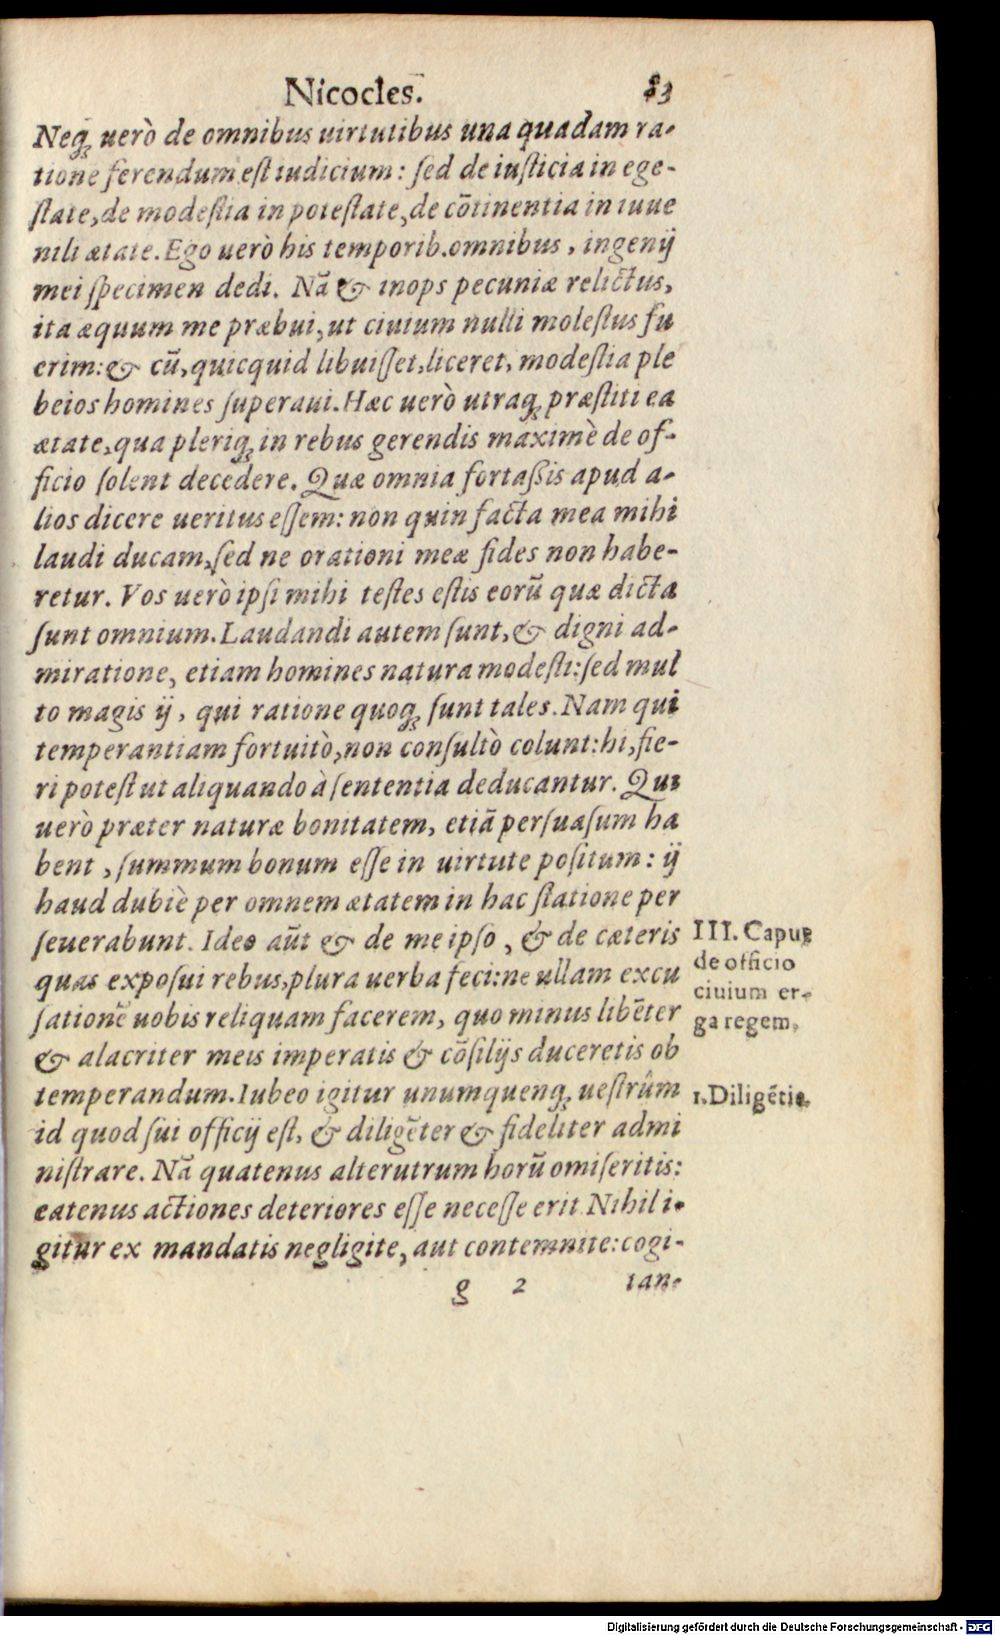 Nicocles. 83
Neq; uerò de omnibus uirtutibus una quadam ra-
tione ferendum est iudicium: sed de iusticia in ege-
state, de modestia in potestate, de cõtinentia in iuue
nili ætate. Ego uerò his temporib. omnibus, ingenij
mei specimen dedi. Nã & inops pecuniæ relictus,
ita æquum me præbui, ut ciuium nulli molestus fu
erim: & cũ, quicquid libuisset, liceret, modestia ple
beios homines superaui. Hæc uerò utraq; præstiti ea
ætate, qua pleriq; in rebus gerendis maximè de of-
ficio solent decedere. Quæ omnia fortaßis apud a-
lios dicere ueritus essem: non quin facta mea mihi
laudi ducam, sed ne orationi meæ fides non habe-
retur. Vos uerò ipsi mihi testes estis eorũ quæ dicta
sunt omnium. Laudandi autem sunt, & digni ad-
miratione, etiam homines natura modesti: sed mul
to magis ij, qui ratione quoq; sunt tales. Nam qui
temperantiam fortuitò, non consultò colunt: hi, fie-
ri potest ut aliquando à sententia deducantur. Qui
uerò præter naturæ bonitatem, etiã persuasum ha
bent, summum bonum esse in uirtute positum: ij
haud dubiè per omnem ætatem in hac statione per
seuerabunt. Ideo aũt & de me ipso, & de cæteris
quas exposui rebus, plura uerba feci: ne ullam excu
sationẽ uobis reliquam facerem, quo minus libẽter
& alacriter meis imperatis & cõsilijs duceretis ob
temperandum. Iubeo igitur unumquenq; uestrûm
id quod sui officij est, & diligẽter & fideliter admi
nistrare. Nã quatenus alterutrum horũ omiseritis:
eatenus actiones deteriores esse necesse erit. Nihil i-
gitur ex mandatis negligite, aut contemnite: cogi-
g 2 tan-
III. Caput
de officio
ciuium er-
ga regem,
1. Diligẽtie.
Digitalisierung gefördert durch die Deutsche Forschungsgemeinschaft - DFG